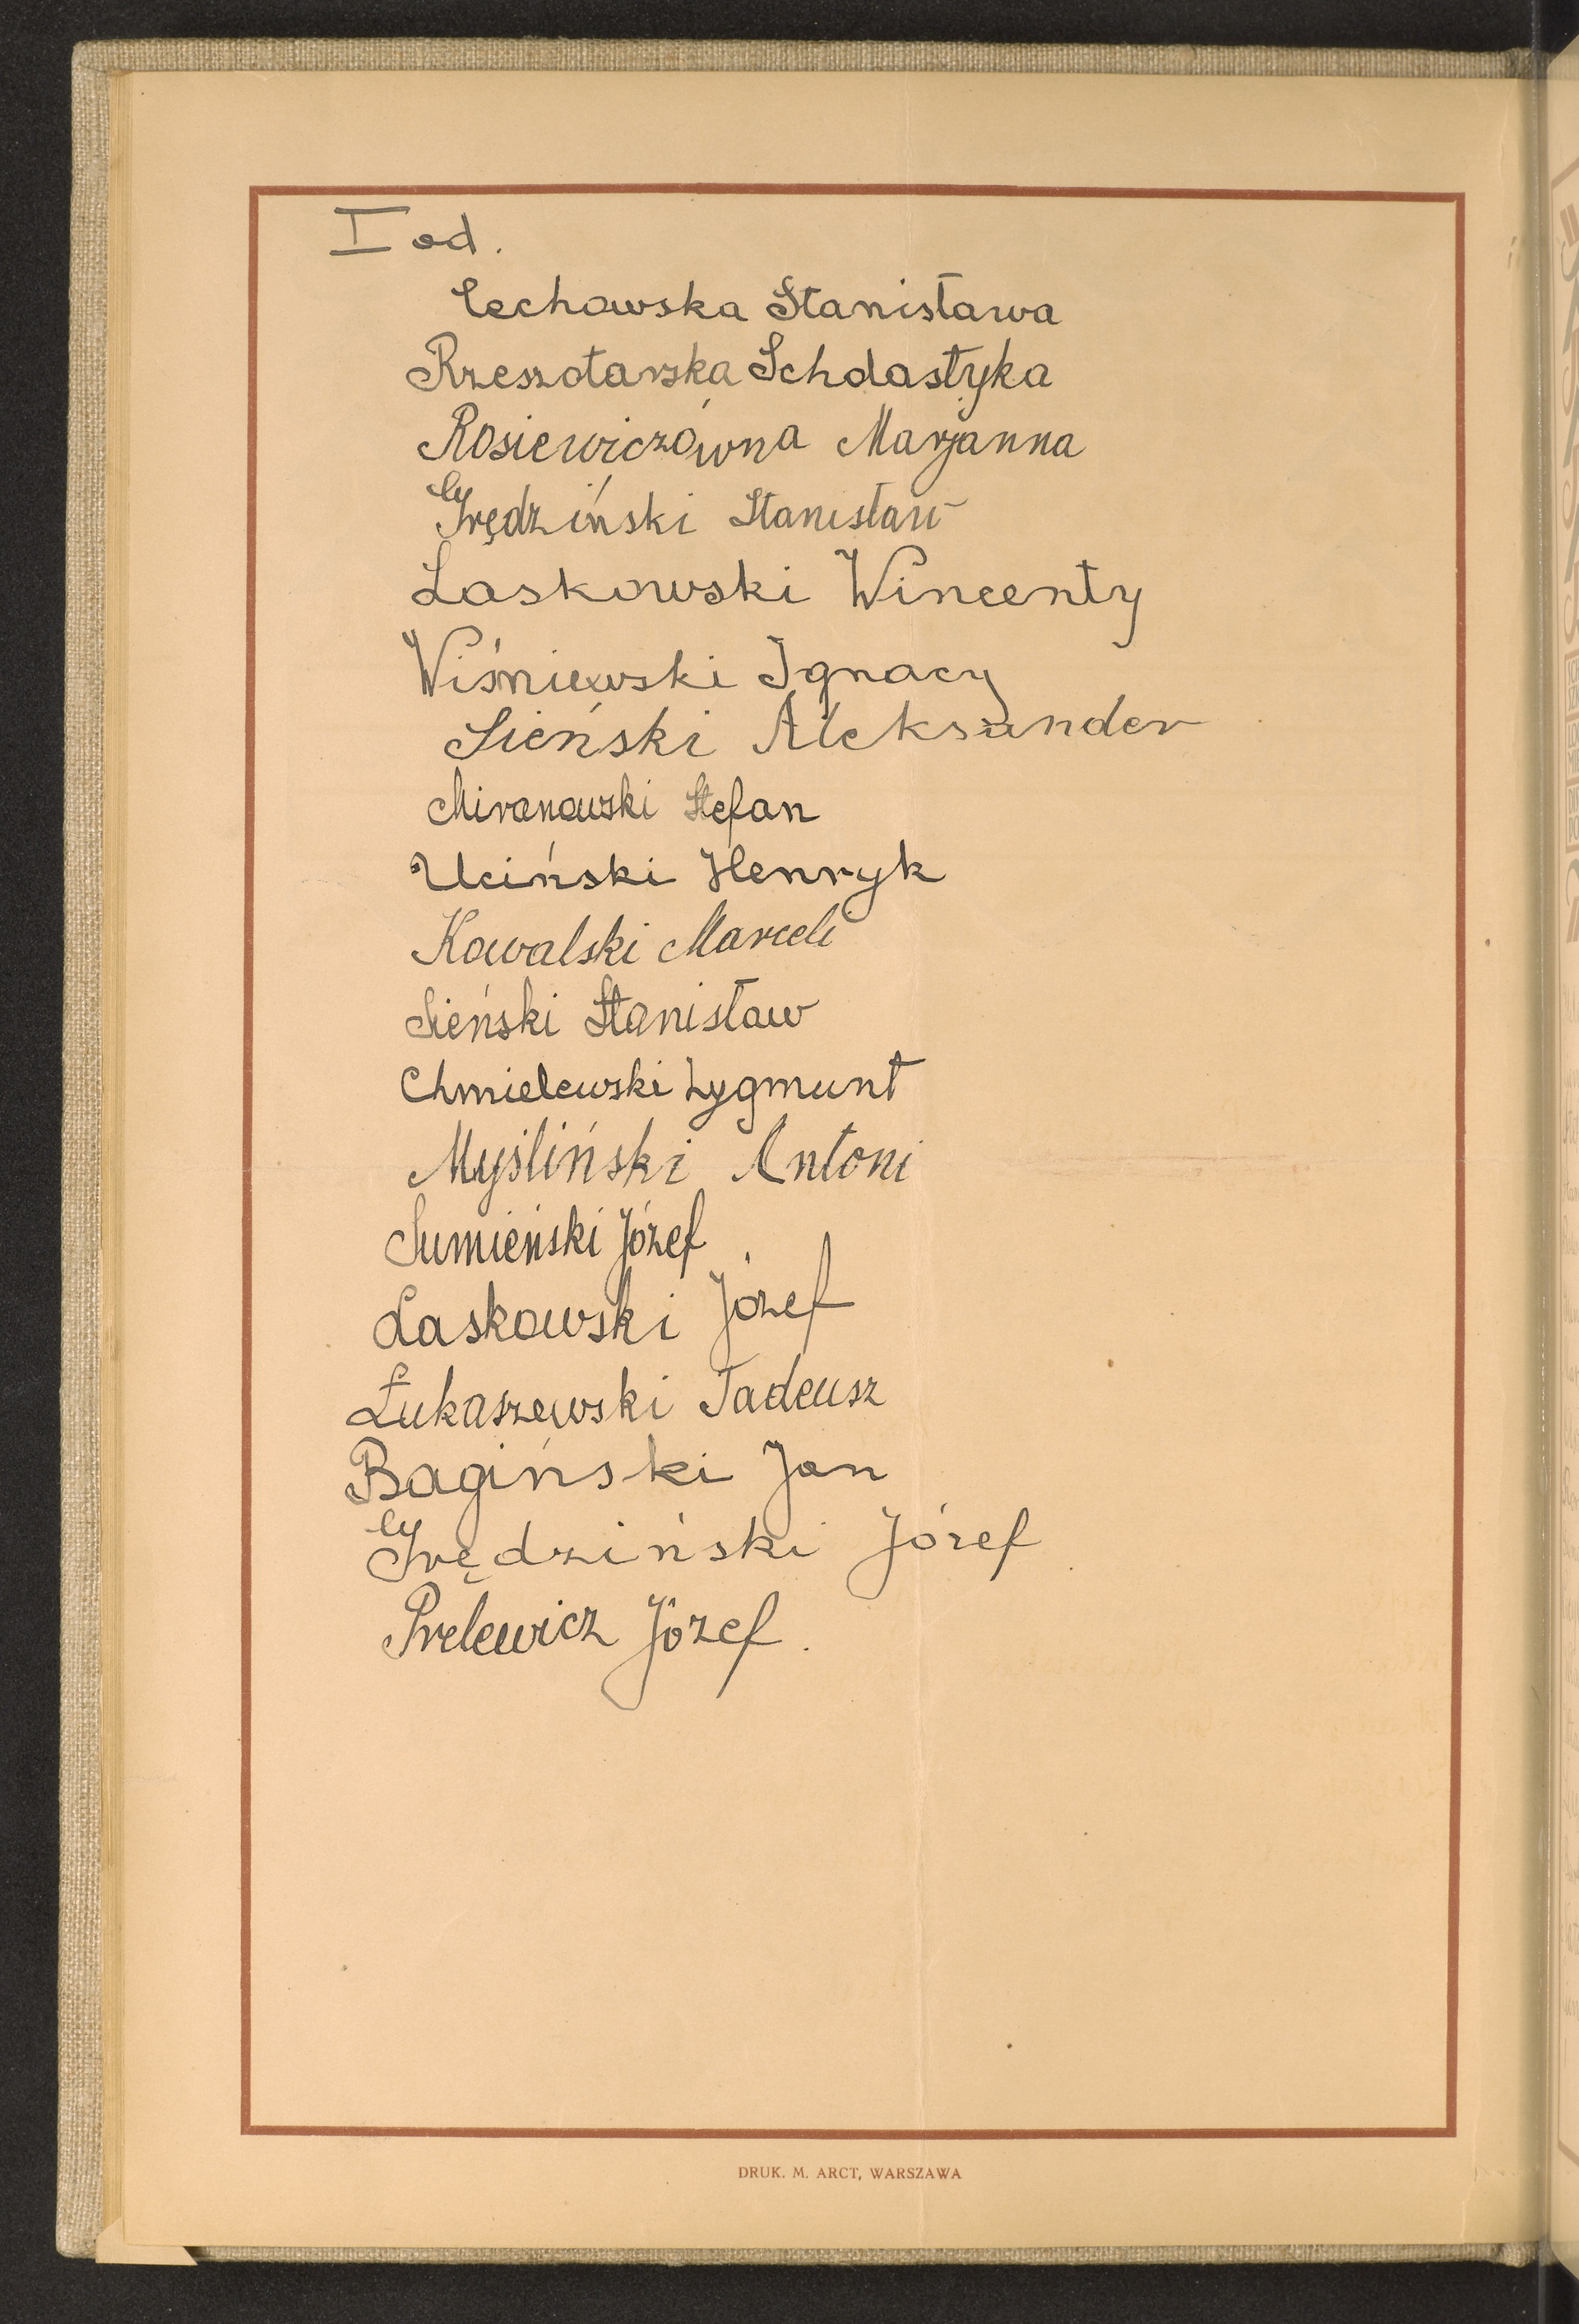 I od.
Cechowska Stanisława
Rzeszotarska Scholastyka
Rosiewiczówna Marjanna
Grędziński Stanisław
Laskowski Wincenty
Wiśniewski Ignacy
Sieński Aleksander
Miranowski Stefan
Uciński Henryk
Kowalski Marceli
Sieński Stanisław
Chmielewski Zygmunt
Myśliński Antoni
Sumieński Józef
Laskowski Józef
Łukaszewski Tadeusz
Bagiński Jan
Grędziński Józef
Prelewicz Józef.
DRUK. M. ARCT, WARSZAWA